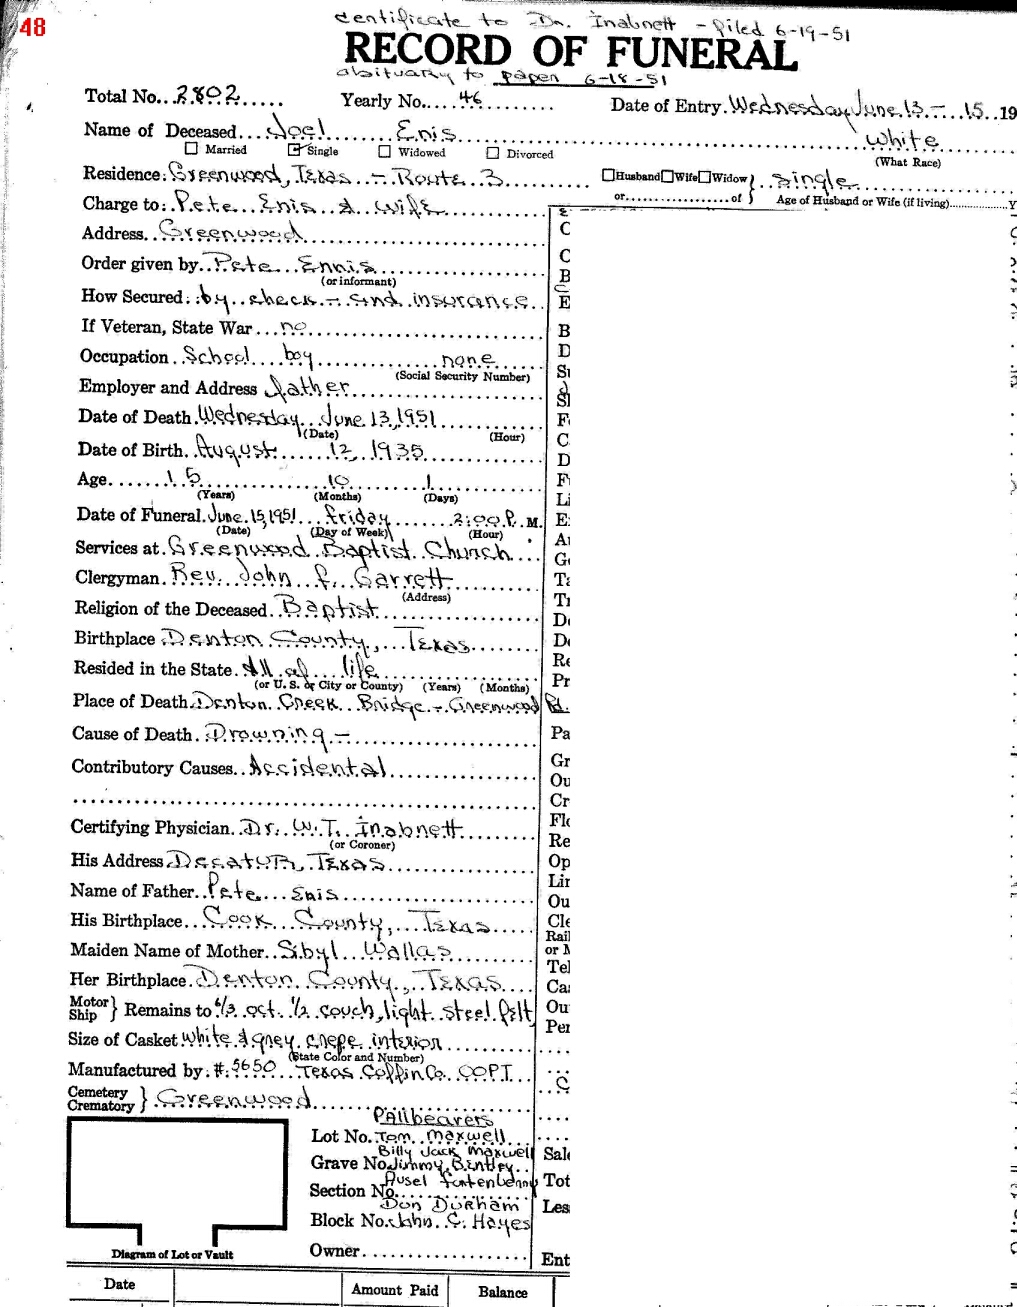 48
certificate to Dr. Inabnett - filed 6-19-51
RECORD OF FUNERAL
obituary to paper 6-18-51
Total No. 2802 Yearly No. 46 Date of Entry. Wednesday June 13 - 15 19
Name of Deceased Joel Enis White
☐ Married ☑ Single ☐ Widowed ☐ Divorced (What Race)
Residence: Greenwood, Texas - Route 3 ☐Husband☐Wife☐Widow} single
or of } Age of Husband or Wife (if living) Y
Charge to: Pete Enis & wife
Address Greenwood
Order given by Pete Ennis
(or informant)
How Secured: by check - and insurance
If Veteran, State War no
Occupation School boy none
(Social Security Number)
Employer and Address father
Date of Death Wednesday June 13, 1951
(Date) (Hour)
Date of Birth August 12, 1935
Age 15 10 1
(Years) (Months) (Days)
Date of Funeral June 15, 1951 friday 2:00 P. M.
(Date) (Day of Week) (Hour)
Services at Greenwood Baptist Church
Clergyman Rev. John f. Garrett
(Address)
Religion of the Deceased Baptist
Birthplace Denton County, Texas
Resided in the State All of life
(or U. S. or City or County) (Years) (Months)
Place of Death Denton Creek Bridge - Greenwood Rd.
Cause of Death Drowning -
Contributory Causes Accidental
Certifying Physician Dr. W.T. Inabnett
(or Coroner)
His Address Decatur, Texas
Name of Father Pete Enis
His Birthplace Cook County, Texas
Maiden Name of Mother Sibyl Wallas
Her Birthplace Denton County, Texas
Motor Ship } Remains to 6/3 oct. 1/2 couch, light steel felt
Size of Casket white & grey crepe interior
(State Color and Number)
Manufactured by: # 5650 Texas Coffin Co. COPT
Cemetery Crematory } Greenwood
Pallbearers
Lot No. Tom Maxwell
Billy Jack Maxwell
Grave No. Jimmy Bentley
Ausel Fortenberry
Section No.
Don Durham
Block No. John C. Hayes
Owner
Diagram of Lot or Vault
Date Amount Paid Balance